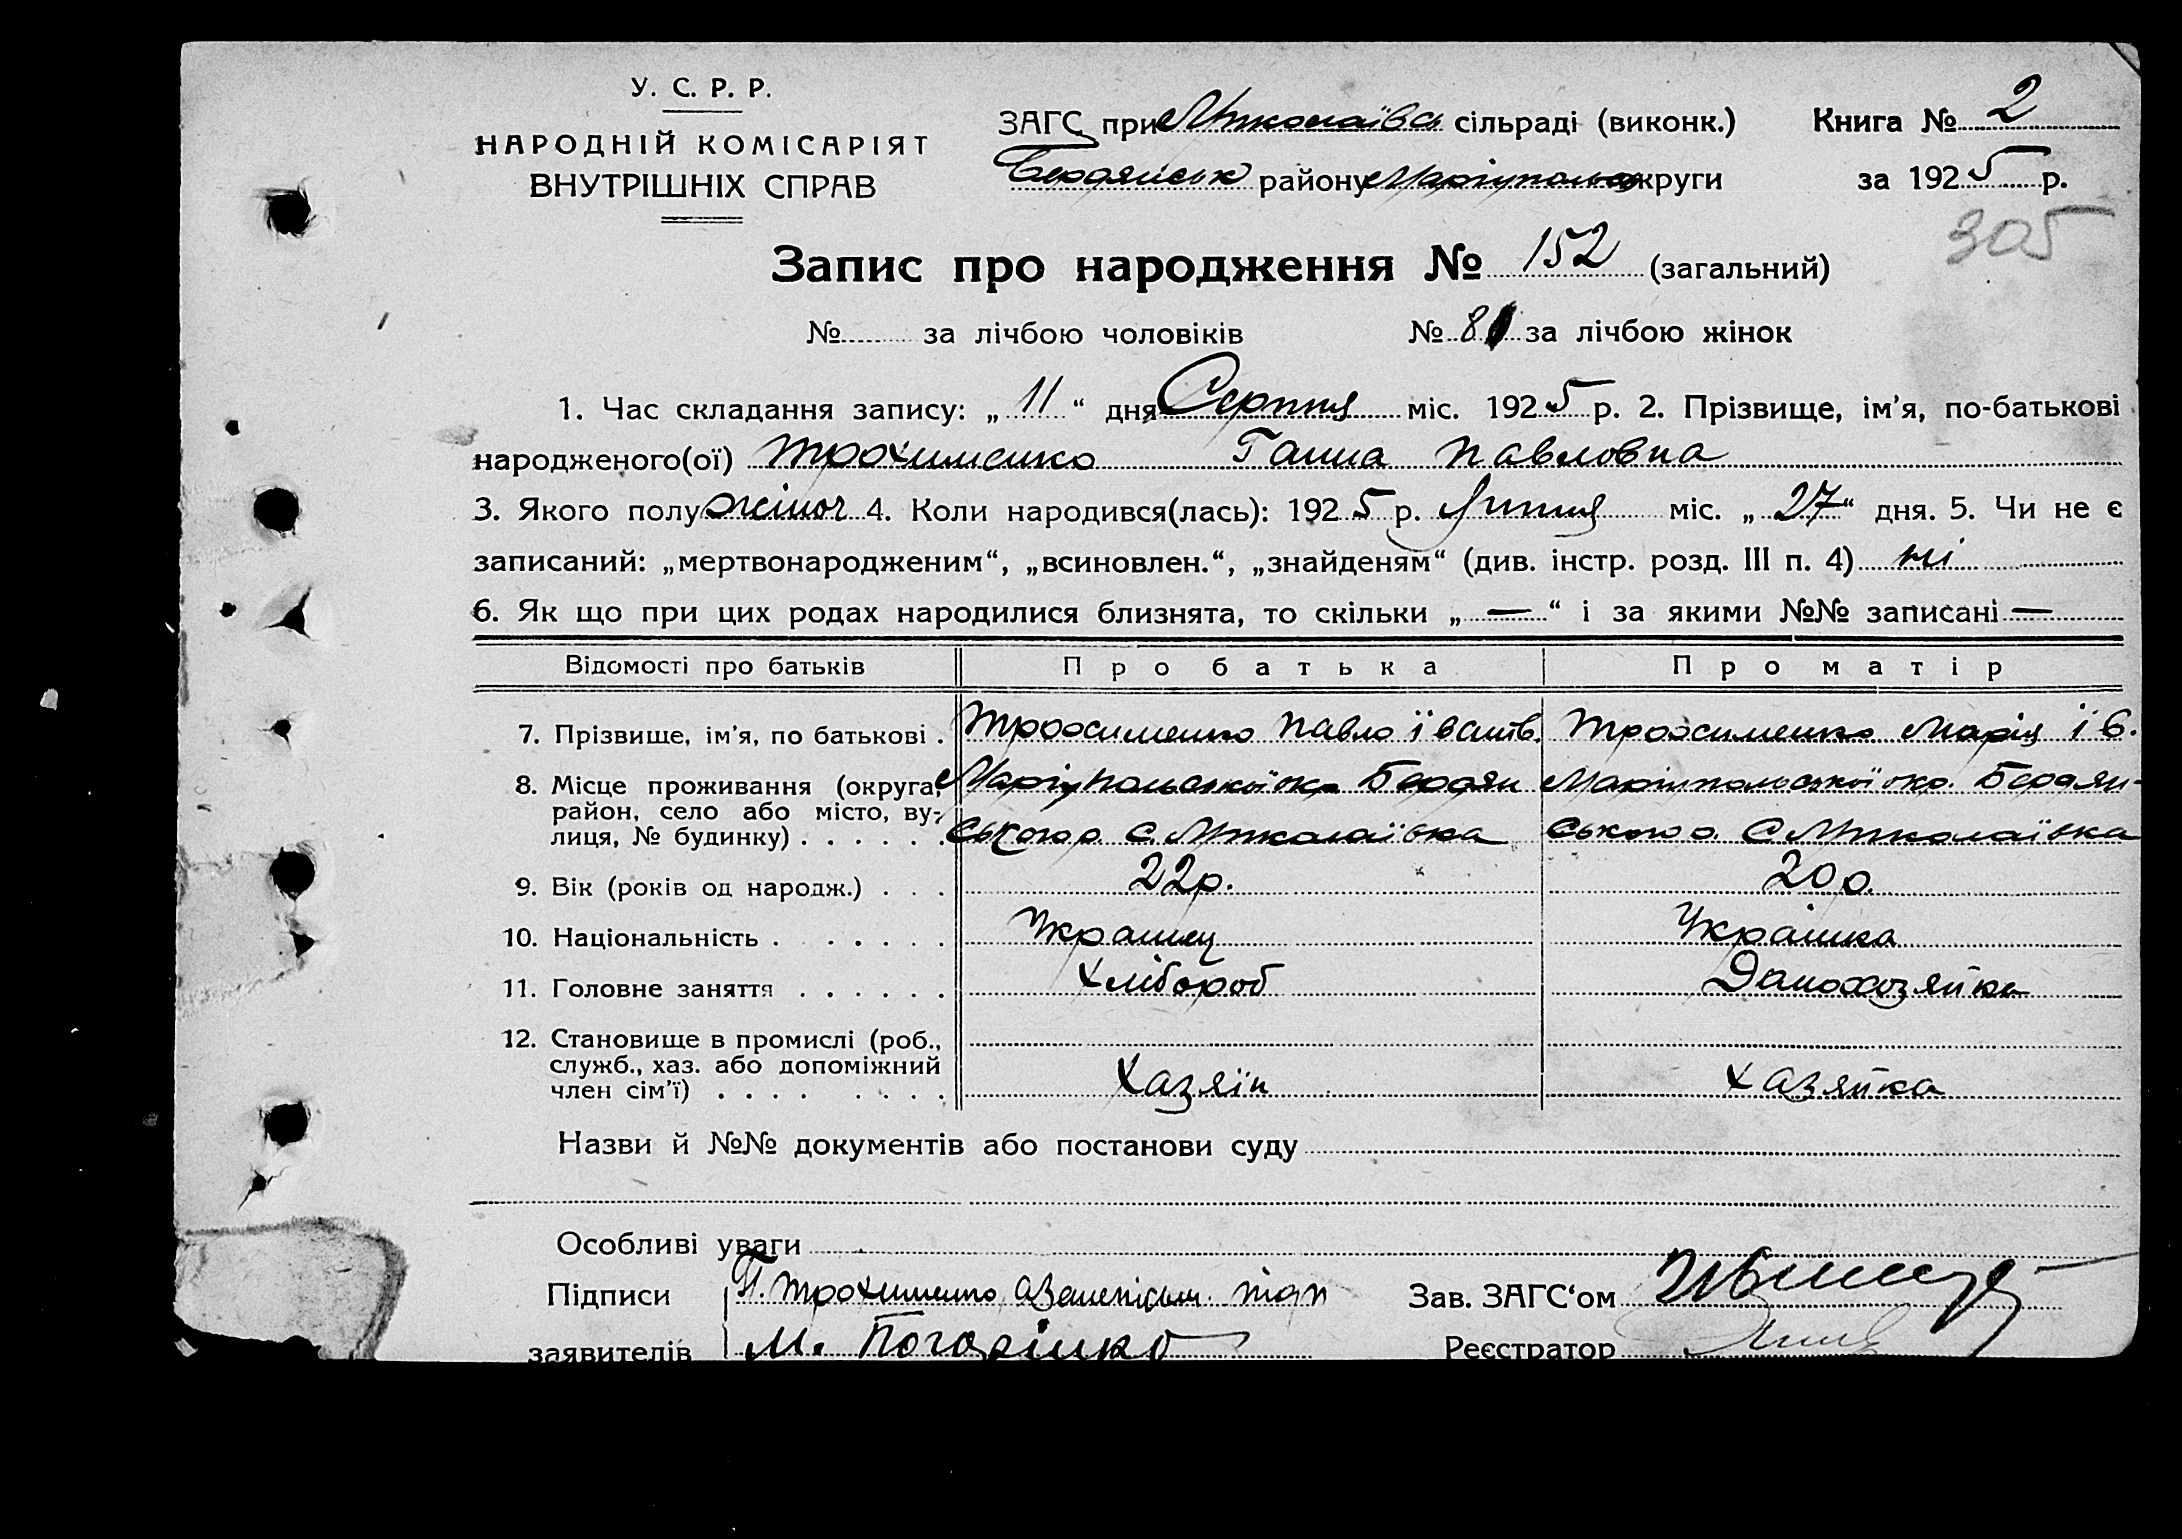 У. С. Р. Р.
НАРОДНІЙ КОМІСАРІЯТ
ВНУТРІШНІХ СПРАВ
ЗАГС при Миколаївсь сільраді (виконк.) Книга № 2
Бердянськ району Маріупольсь округи за 1925 р.
305
Запис про народження № 152 (загальний)
№ за лічбою чоловіків № 81 за лічбою жінок
1. Час складання запису: „ 11 “ дня Серпня міс. 1925 р. 2. Прізвище, ім’я, по-батькові
народженого(ої) Трохименко Ганна Павловна
3. Якого полу жіноч 4. Коли народився(лась): 1925 р. Липня міс. „ 27 “ дня. 5. Чи не є
записаний: „мертвонародженим“, „всиновлен.“, „знайденям“ (див. інстр. розд. III п. 4) ні
6. Як що при цих родах народилися близнята, то скільки „ — “ і за якими №№ записані —
Відомості про батьків Про батька Про матір
7. Прізвище, ім’я, по батькові . Трохименко Павло Іванв. Трохименко Марія Ів.
8. Місце проживання (округа, Маріупольської окр Бердян Маріупольської окр. Бердян-
район, село або місто, ву-
лиця, № будинку) . . . . . . ського р. с. Миколаївка ського р. с Миколаївка
9. Вік (років од народж.) . . . 22р. 20 р.
10. Національність . . . . . . Украинец Украінка
11. Головне заняття . . . . . . Хлібороб Домохозяйка
12. Становище в промислі (роб.,
служб., хаз. або допоміжний
член сім’ї) . . . . . . . . Хазяїн Хазяйка
Назви й №№ документів або постанови суду
Особливі уваги
Підписи П. Трохименко Зав. ЗАГС‘ом
заявителів М. Реєстратор